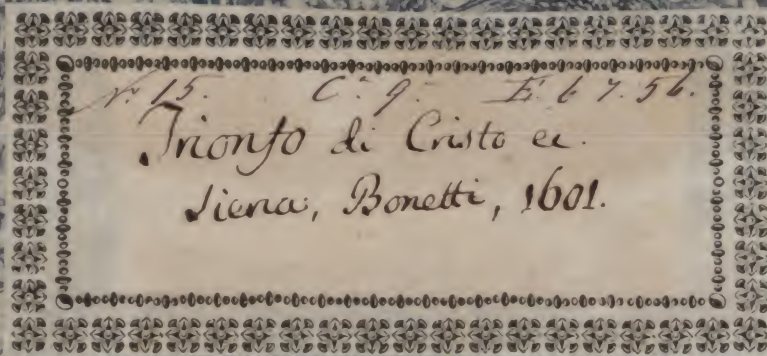 Nº 15. C.ª 9. E. 6 7. 56.
Trionfo di Cristo ec.
Siena, Bonetti, 1601.